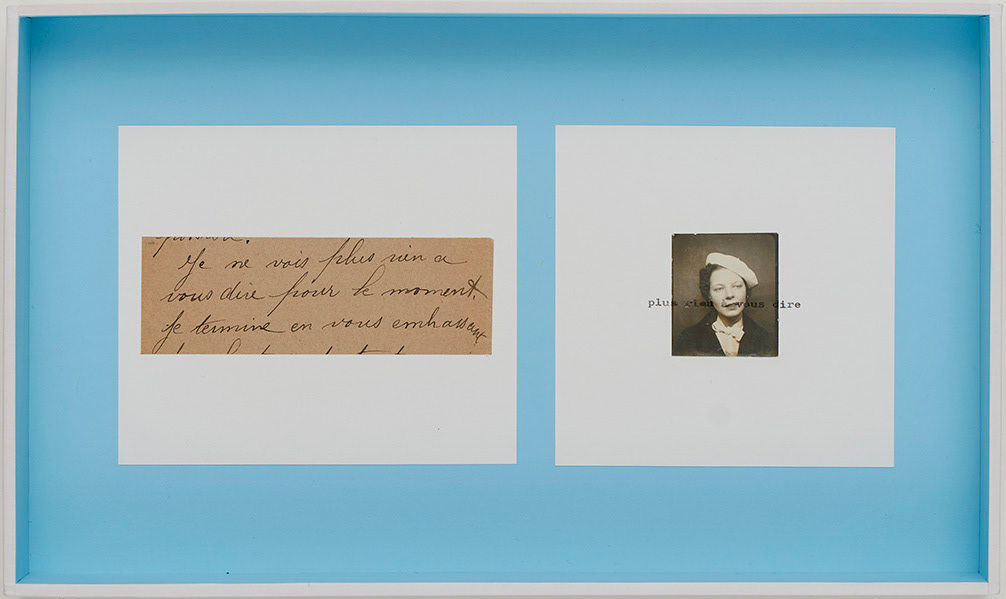 Je ne vois plus rien a
vous dire pour le moment.
Je termine en vous embrassant
plus rien a vous dire